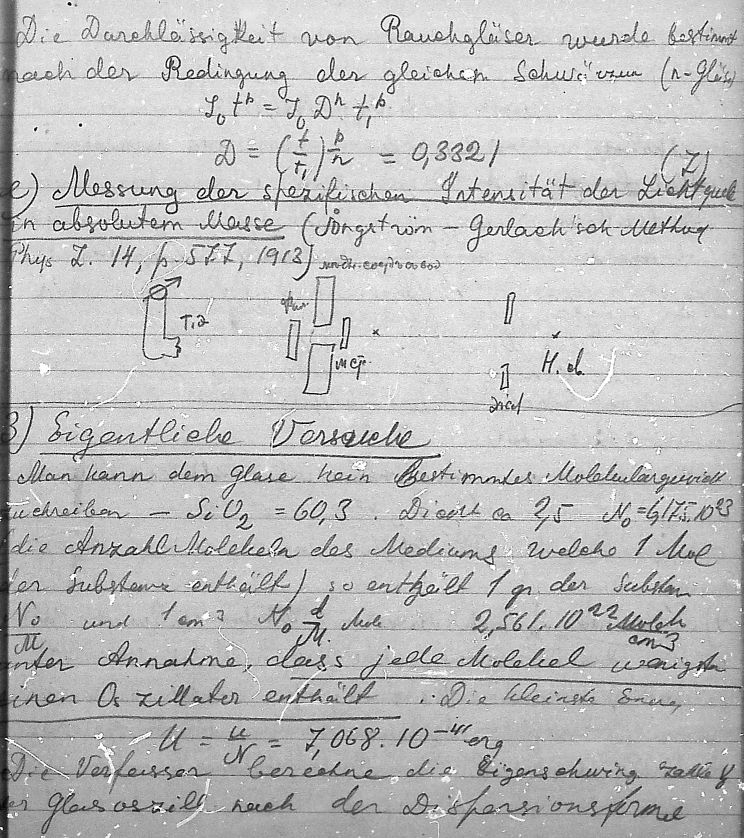 Die Durchlässigkeit von Rauchgläser wurde bestimmt
nach der Bedingung der gleichen Schwärzun (n-Gläs
J₀ tᵖ = J₀ Dⁿ t₁ᵖ
D = (t/t₁) p/n = 0,3321 (7)
e) Messung der spezifischen Intensität der Lichtquele
in absolutem Masse (Ångström - Gerlach'sch Method
Phys Z. 14, p. 577, 1913)
T, a
H. d.
3) Eigentliche Versuche
Man kann dem Glase kein bestimmtes Molekulargewicht
zuchreiben - SiO₂ = 60,3. Dicht ca 2,5 N₀ = 6,175.10²³
(die Anzahl Molekeln des Mediums welche 1 Mol
der Substanz enthält) so enthält 1 gr. der Substan
N₀/M und 1 cm³ N₀ d/M Mole 2,561.10²² Molek/cm³
unter Annahme, dass jede Molekel wenigstn
einen Oszillator enthält. Die kleinste Energ
U = u/N = 7,068.10⁻¹¹ erg
Die Verfasser berechne die Eigenschwing zahl
der Glasoszill nach der Dispersionsformel